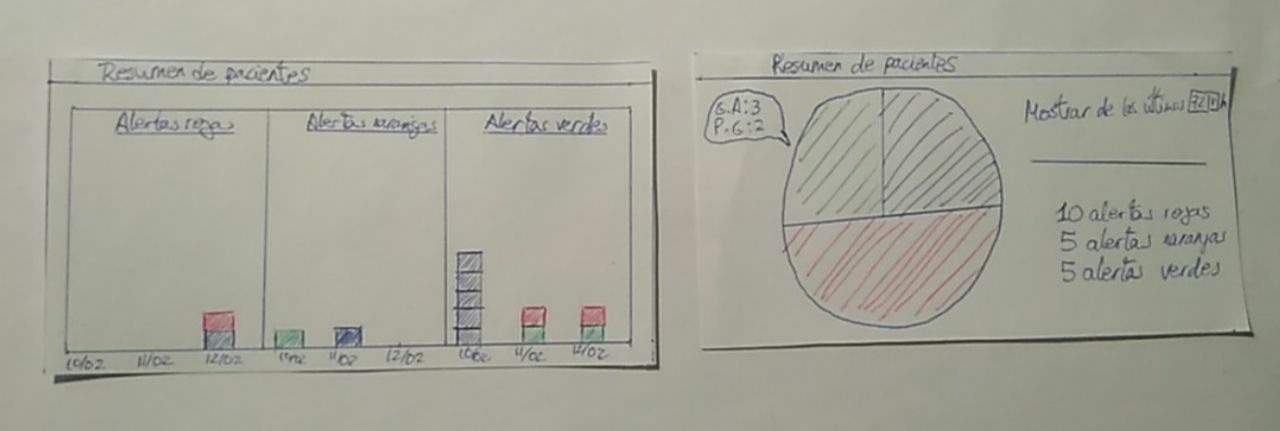 Resumen de pacientes
Alertas rojas
Alertas naranjas
Alertas verdes
10/02
11/02
12/02
10/02
11/02
12/02
10/02
11/02
12/02
Resumen de pacientes
G.A:3
P.G:2
Mostrar de las últimas 72 h
10 alertas rojas
5 alertas naranjas
5 alertas verdes